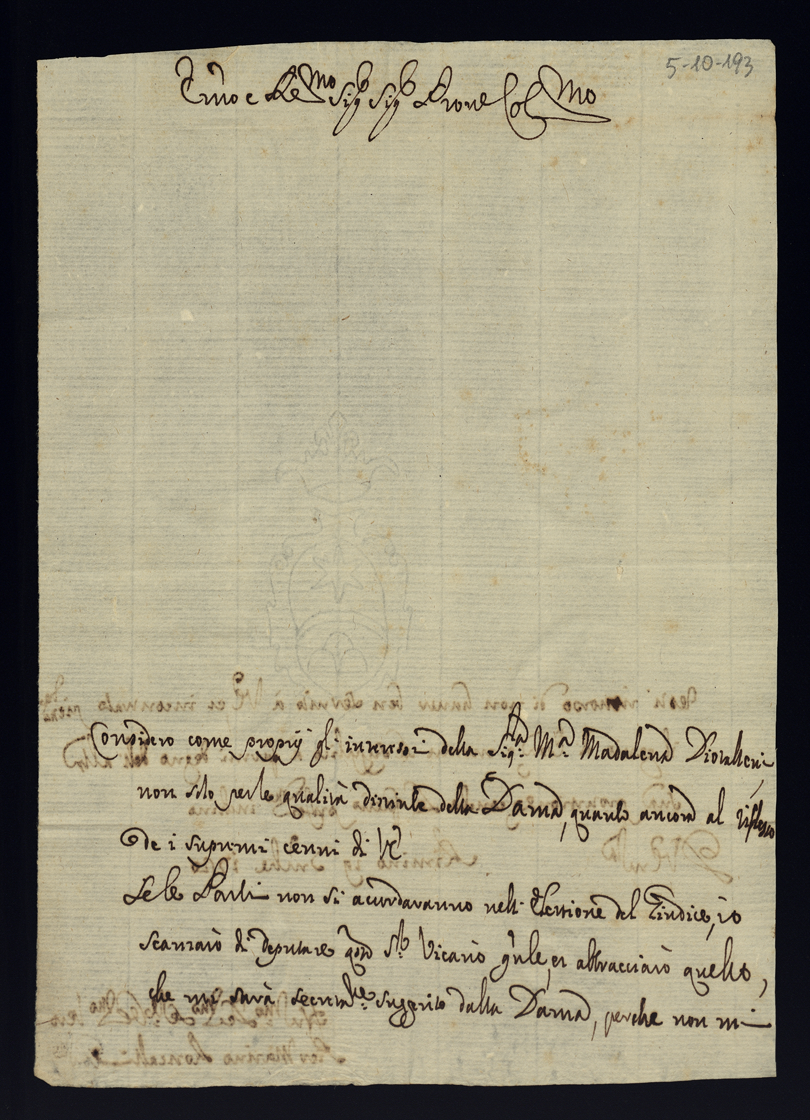 5-10-193
Emo e Re Mo Sigr Sigr Prone Col Mo
Considero come proprij gl'interessi della Sigra Ma Madalena Diotalleui
non solo per le qualità distinte della Dama, quanto ancora al riflesso
de i supremi cenni di VE
Se le Parti non si acordaranno nell'Elettione del Giudice, io
scanzarò di deputare qsto Sr Vicario gnle, et abbracciarò quello,
che mi sarà secretamte suggerito dalla Dama, perche non mi